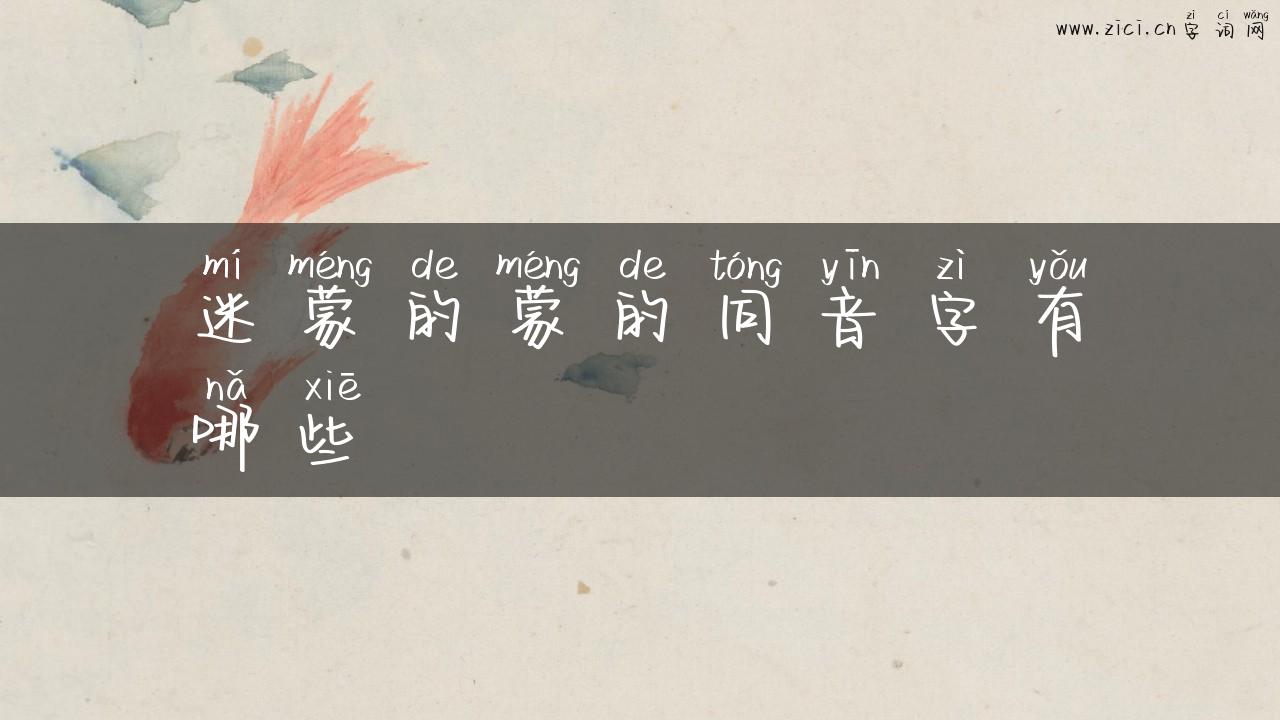 zì cí wǎng
www.zici.cn 字词网
mí méng de méng de tóng yīn zì yǒu
迷蒙的蒙的同音字有
nǎ xiē
哪些